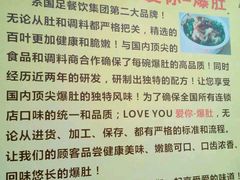 爱你-爆肚
索国足餐饮集团第二大品牌!
无论从肚和调料都严格把关,精选的
百叶更加健康和脆嫩!与国内顶尖的
食品和调料商合作确保了每碗爆肚的高品质!同时
经历近两年的研发,研制出独特的配方!让您享受
国内顶尖爆肚的独特风味!为了确保全国所有连锁
店口味的统一和品质;LOVE YOU 爱你·爆肚,无
论从进货、加工、保存、都有严格的标准和流程。
让我们的顾客品尝健康美味、嫩脆可口、口齿浓香、
回味悠长的爆肚!
起享受爱的味道!